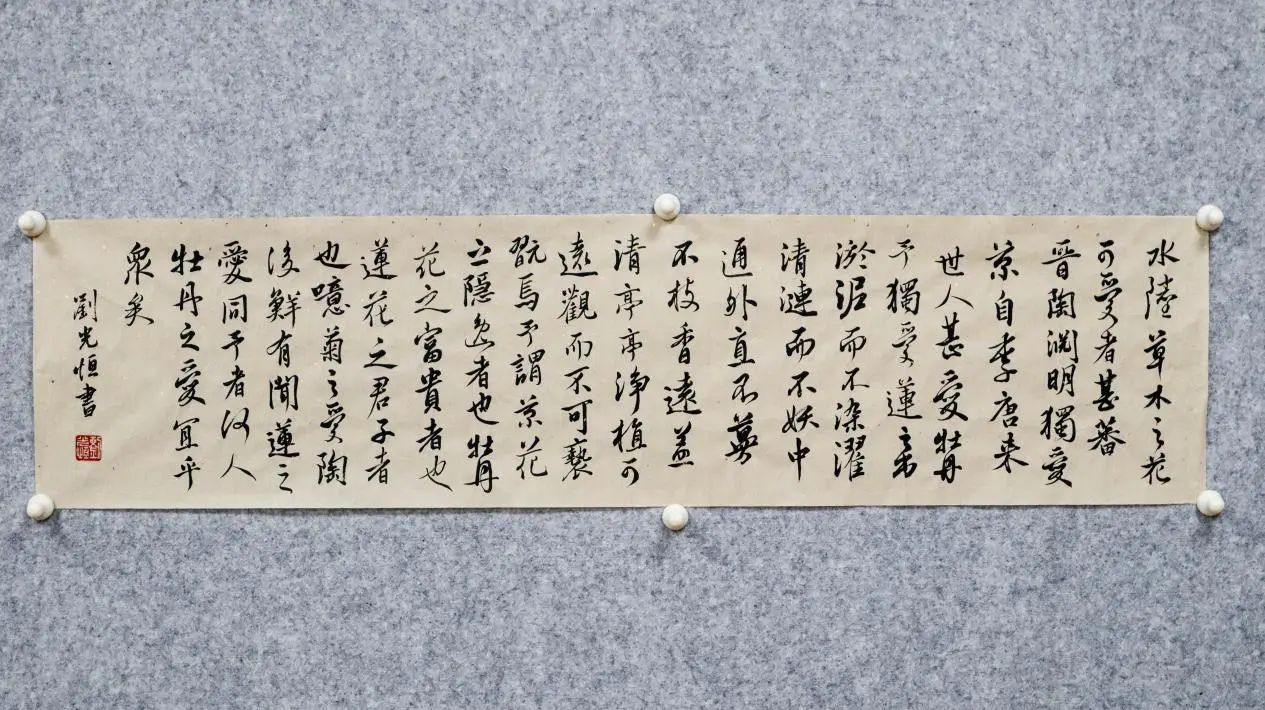 水陸草木之花
可愛者甚蕃
晉陶渊明獨愛
菊自李唐来
世人甚愛牡丹
予獨愛蓮之出
淤泥而不染濯
清漣而不妖中
通外直不蔓
不枝香遠益
清亭亭淨植可
遠觀而不可褻
翫焉予謂菊花
之隱逸者也牡丹
花之富貴者也
蓮花之君子者
也噫菊之愛陶
後鮮有聞蓮之
愛同予者何人
牡丹之愛宜乎
衆矣
劉光恒書